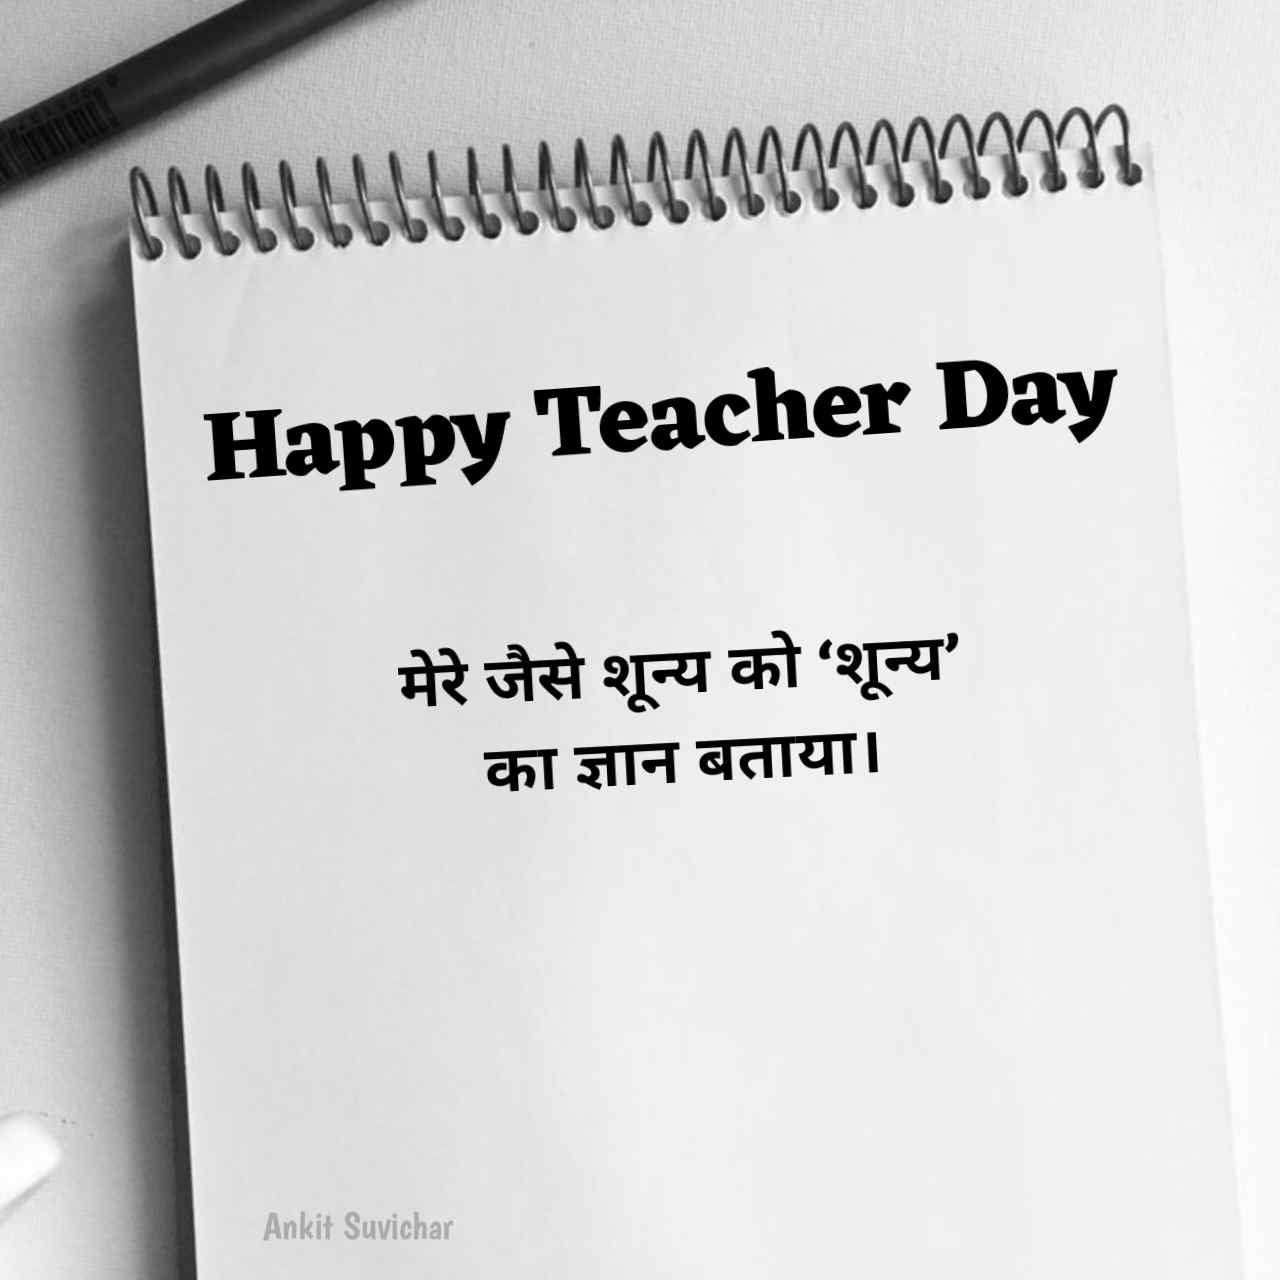 Happy Teacher Day
मेरे जैसे शून्य को ‘शून्य’
का ज्ञान बताया।
Ankit Suvichar